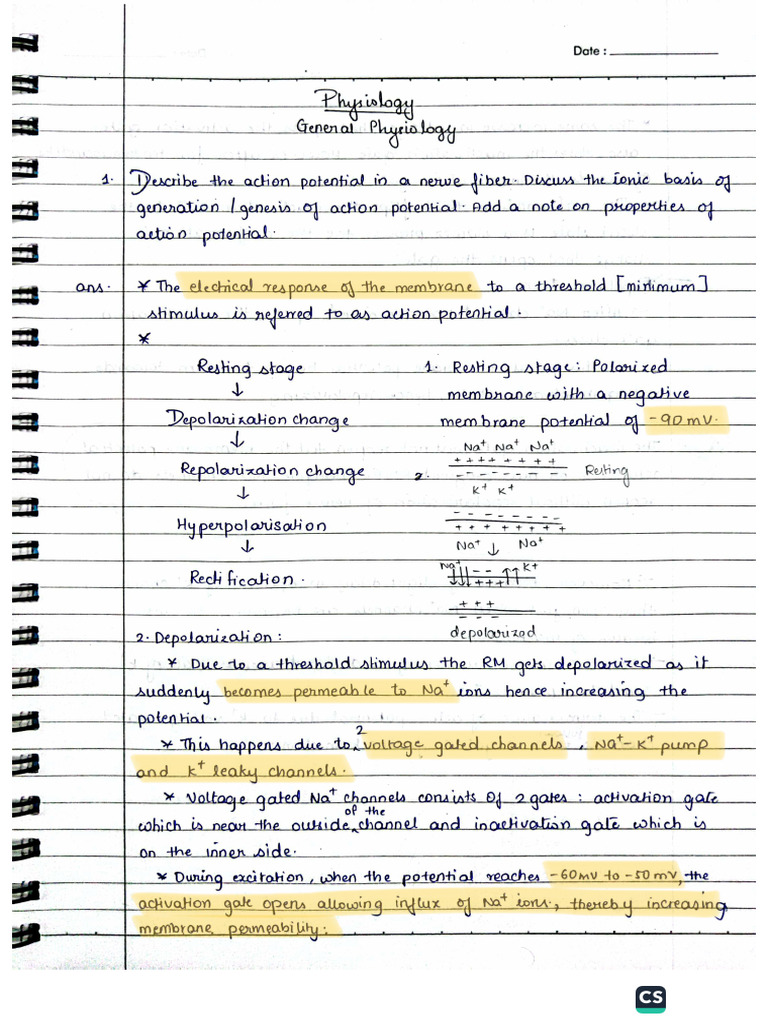 Date :
Physiology
General Physiology
1. Describe the action potential in a nerve fiber. Discuss the ionic basis of
generation / genesis of action potential. Add a note on properties of
action potential.
ans. * The electrical response of the membrane to a threshold [minimum]
stimulus is referred to as action potential.
*
Resting stage
↓
Depolarization change
↓
Repolarization change
↓
Hyperpolarisation
↓
Rectification.
1. Resting stage: Polarized
membrane with a negative
membrane potential of -90 mV.
2.
Na⁺ Na⁺ Na⁺
+ + + + + + + + +
- - - - - - - -
Resting
K⁺ K⁺
- - - - - - - -
+ + + + + + + +
Na⁺ ↓ Na⁺
Na⁺ ↓↓↓ - - ↑↑ K⁺
+ + + +
+ + +
- - -
depolarized
2. Depolarization :
* Due to a threshold stimulus the RM gets depolarized as it
suddenly becomes permeable to Na⁺ ions hence increasing the
potential.
* This happens due to 2 voltage gated channels, Na⁺-K⁺ pump
and K⁺ leaky channels.
* Voltage gated Na⁺ channels consists of 2 gates : activation gate
which is near the outside of the channel and inactivation gate which is
on the inner side.
* During excitation, when the potential reaches -60mv to -50mv, the
activation gate opens allowing influx of Na⁺ ions., thereby increasing
membrane permeability.
CS